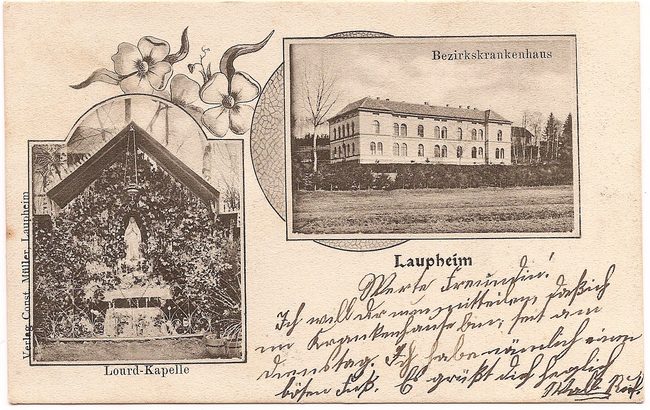 Bezirkskrankenhaus
Verlag Const. Müller, Laupheim
Lourd-Kapelle
Laupheim
Werte Freundin!
Ich will dir nun mitteilen daß ich
im Krankenhause bin, seit am
Dienstag. Ich habe nämlich einen
bösen Fuß. Es grüßt dich herzlich